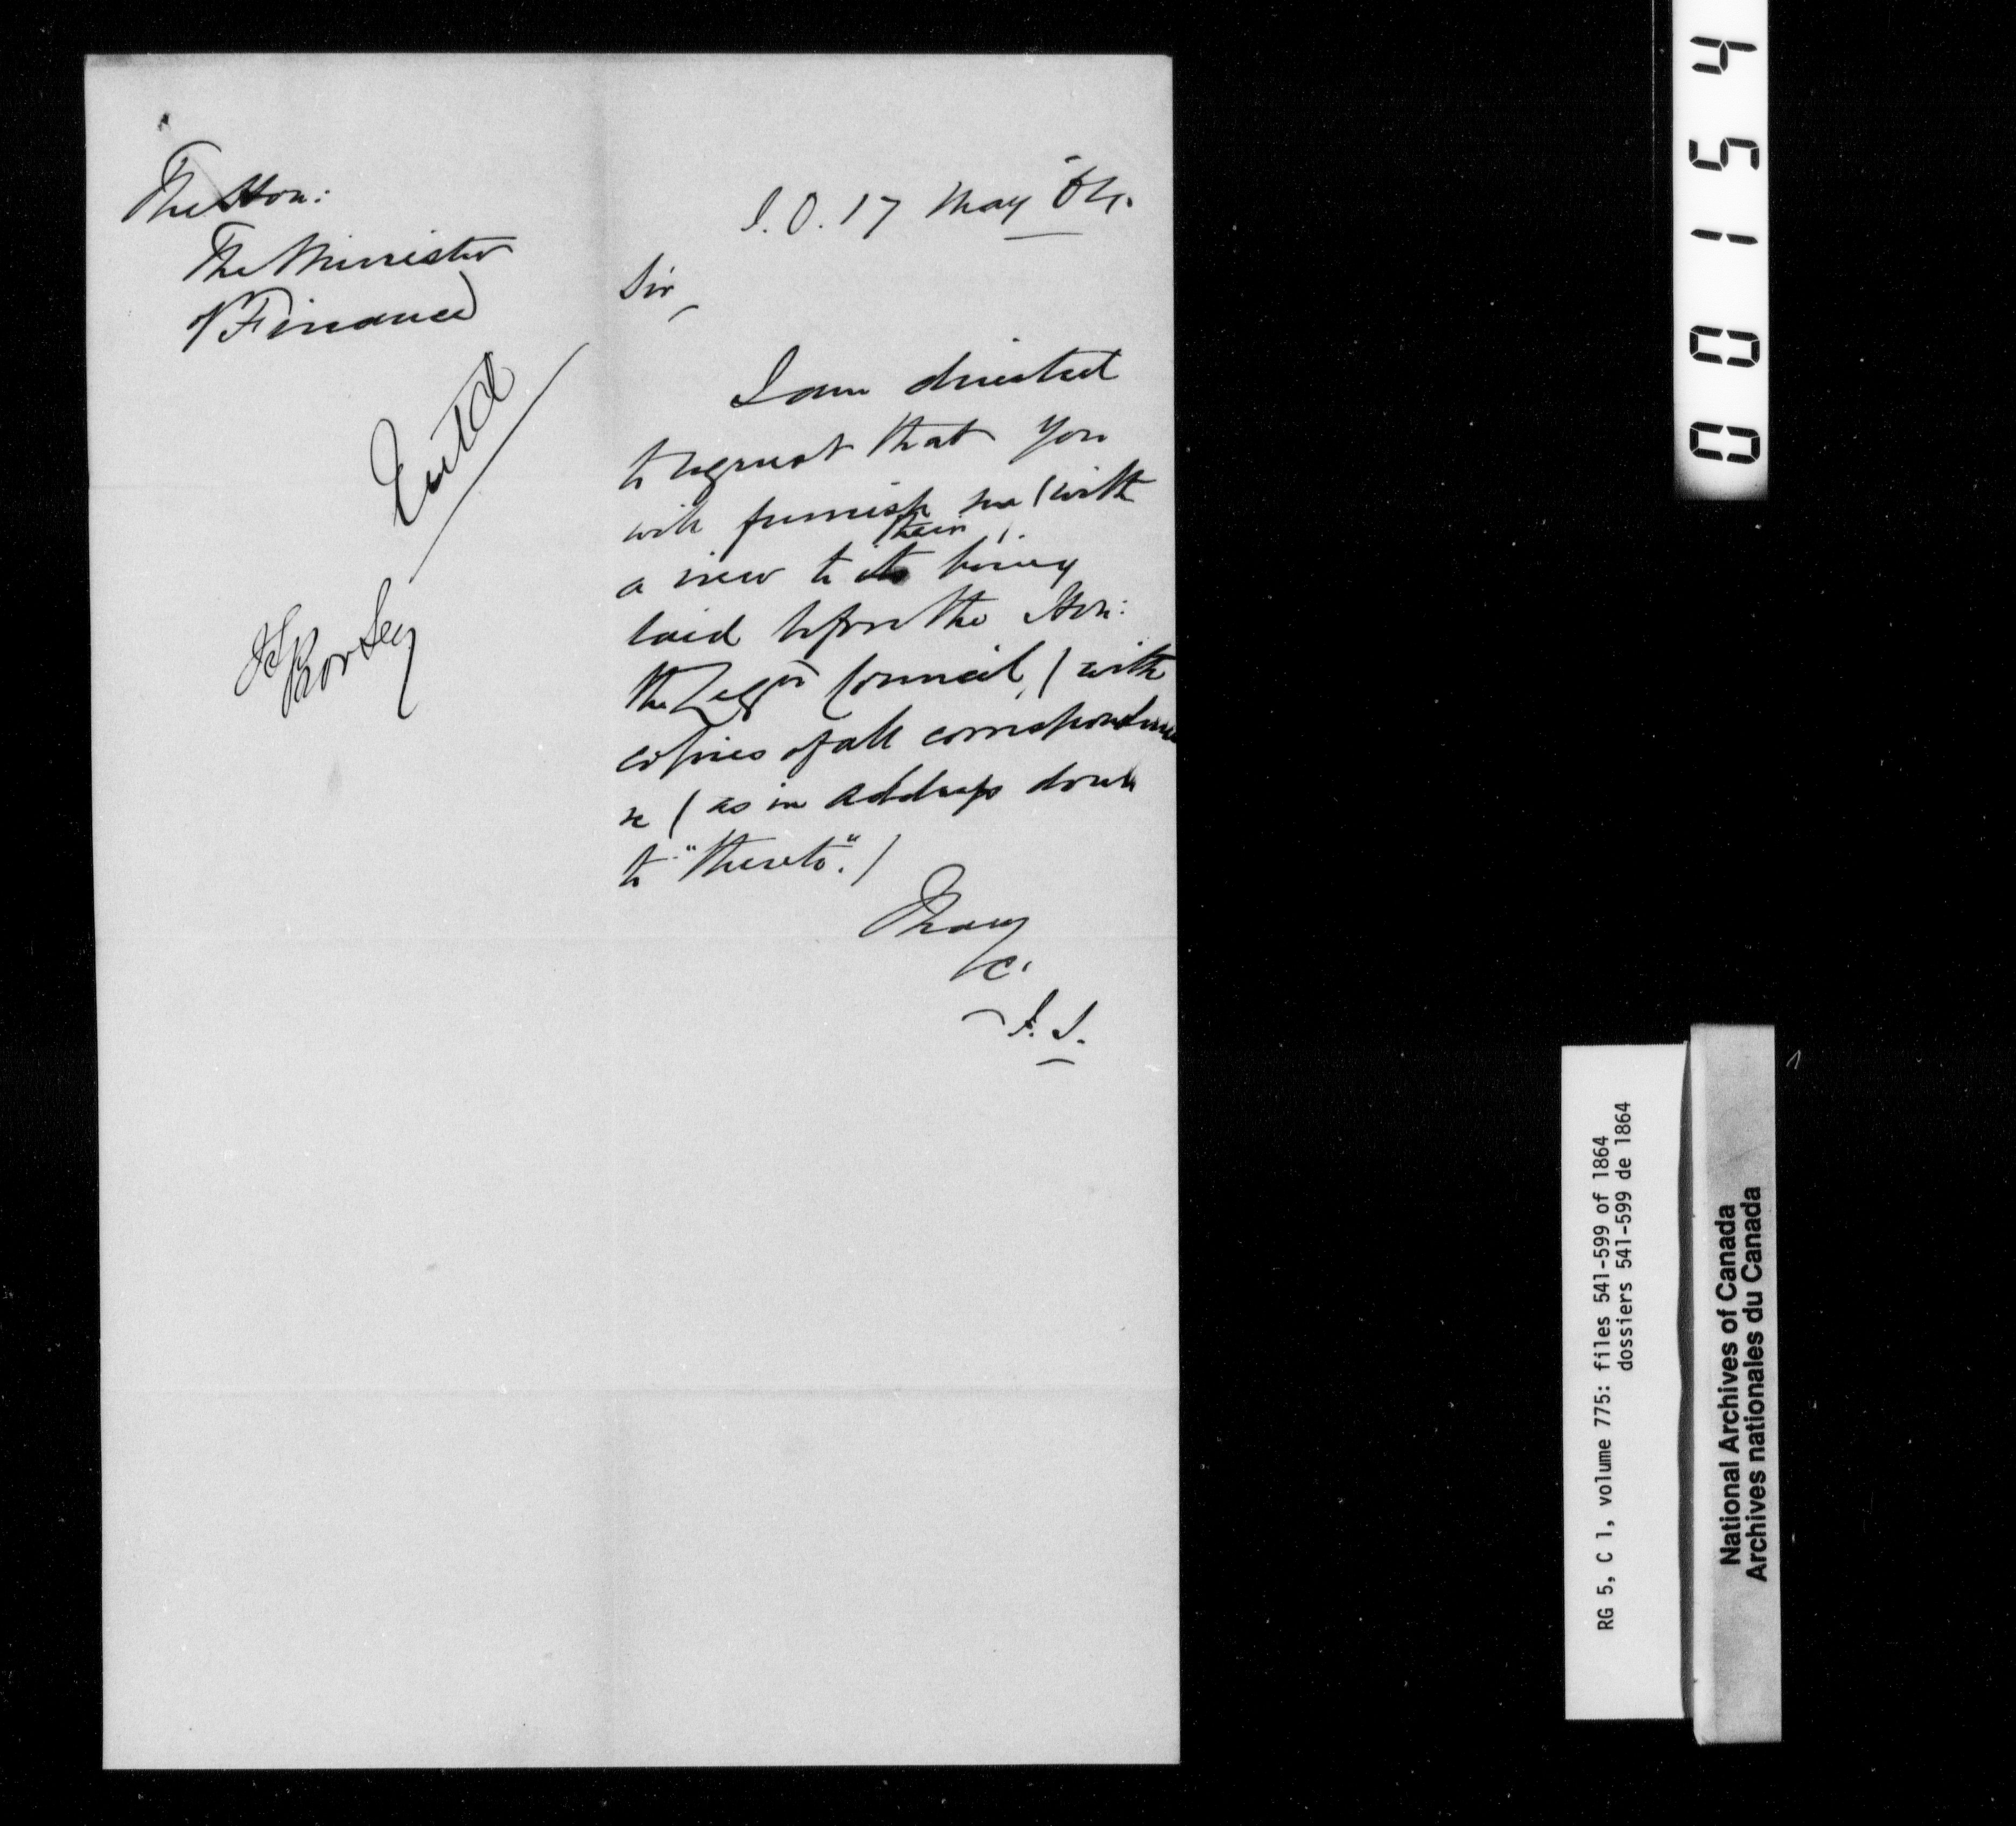 The Hon:
The Minister
of Finance
Ent'd
Prov Secy
S.O. 17 May '64.
Sir,
I am directed
to request that you
will furnish me (with
a view to their being
laid before the Hon:
the Leg. Council,) with
copies of all correspondence
&c (as in address down
to "thereto".)
I have
&c.
00154
RG 5, C 1, volume 775: files 541-599 of 1864
dossiers 541-599 de 1864
National Archives of Canada
Archives nationales du Canada